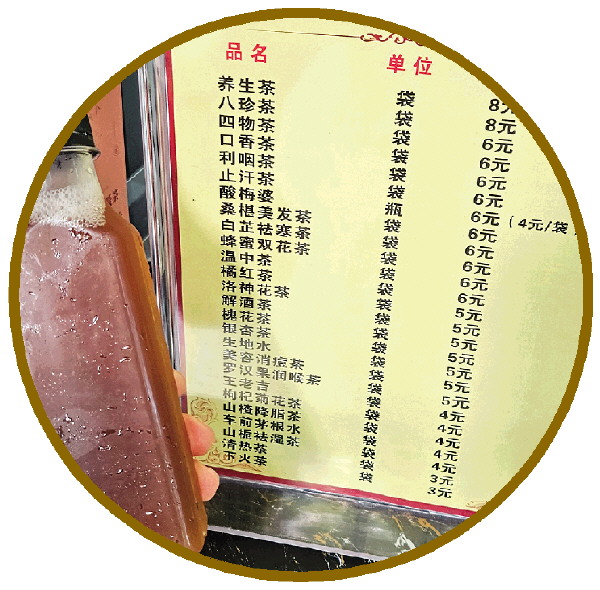 品名 单位
养生茶 袋 8元
八珍茶 袋 8元
四物茶 袋 6元
口香茶 袋 6元
利咽茶 袋 6元
止汗茶 袋 6元
酸梅婆 瓶 6元（4元/袋）
桑椹美发茶 袋 6元
白芷祛寒茶 袋 6元
蜂蜜双花茶 袋 6元
温中茶 袋 6元
橘红茶 袋 6元
洛神花茶 袋 5元
解酒茶 袋 5元
槐花茶 袋 5元
银杏茶 袋 5元
生地水 袋 5元
美容消痘茶 袋 5元
罗汉果润喉茶 袋 5元
王老吉 袋 4元
枸杞菊花茶 袋 4元
山楂降脂茶 袋 4元
车前茅根水 袋 4元
山栀祛湿茶 袋 4元
清热茶 袋 3元
下火茶 袋 3元